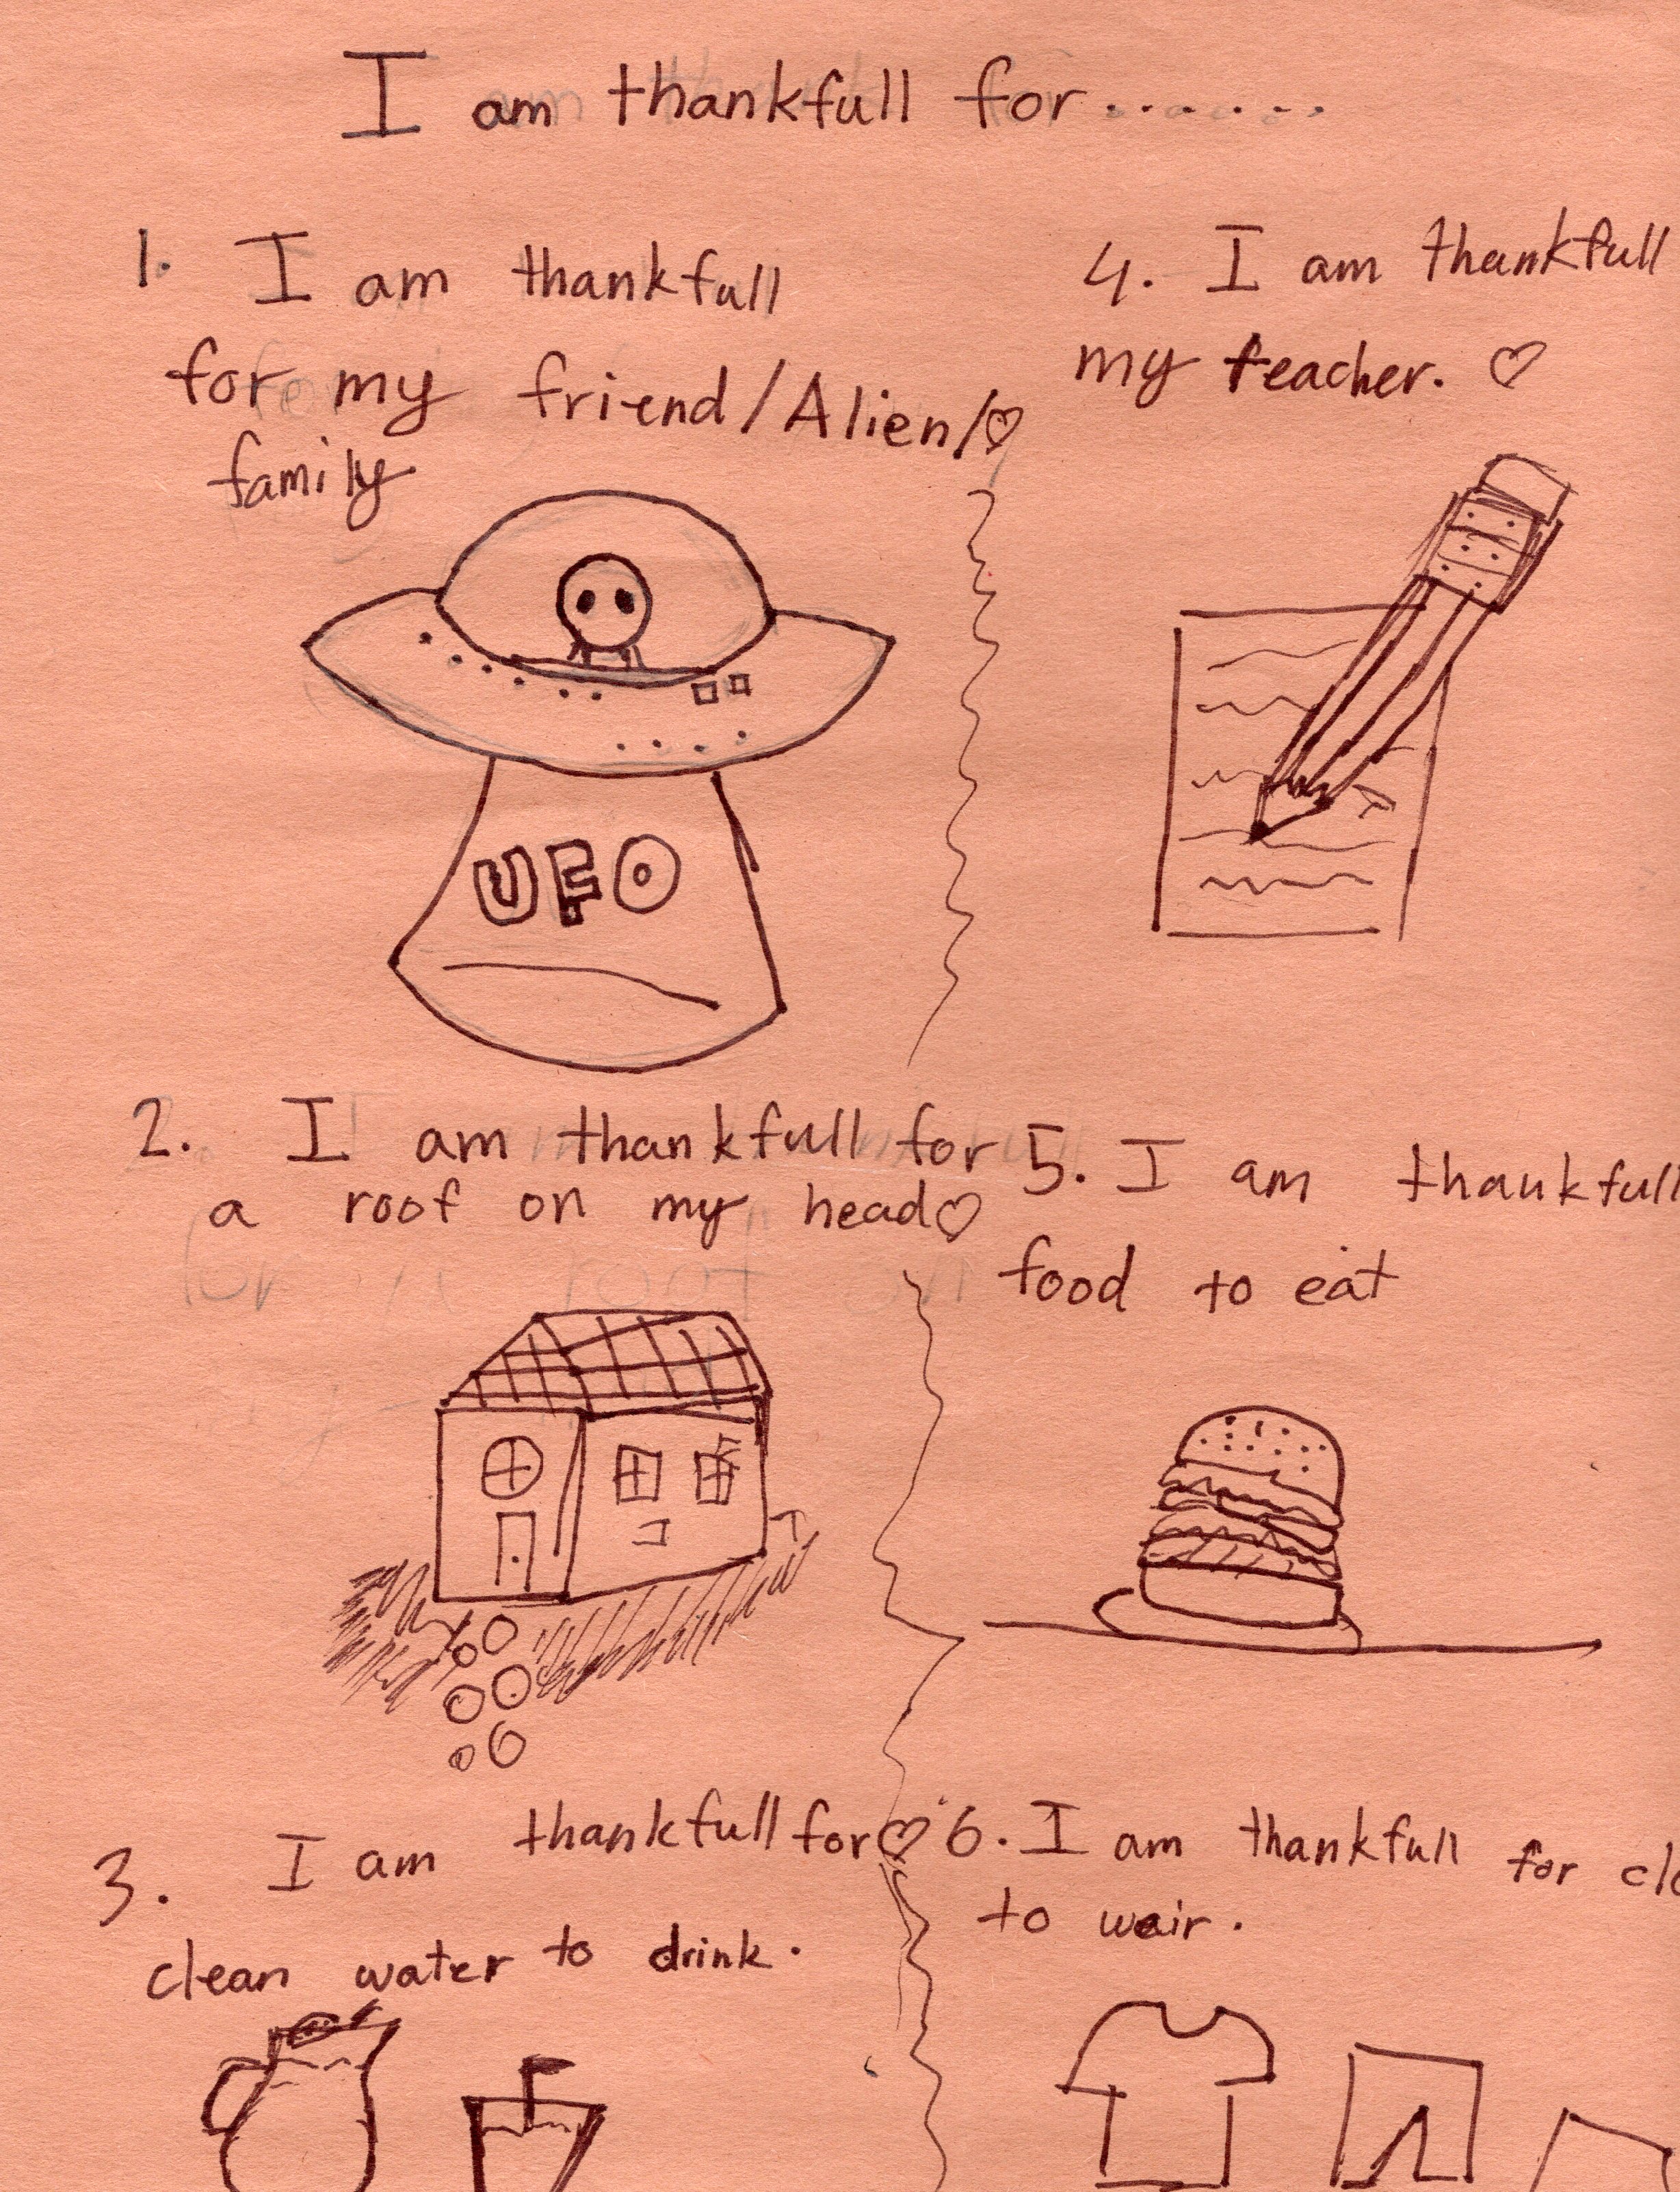 I am thankfull for.......
1. I am thankfull
for my friend/Alien/♡
family
UFO
2. I am thankfull for
a roof on my head♡
3. I am thankfull for♡
clean water to drink.
4. I am thankfull
my teacher. ♡
5. I am thankfull
food to eat
6. I am thankfull for clo
to wair.